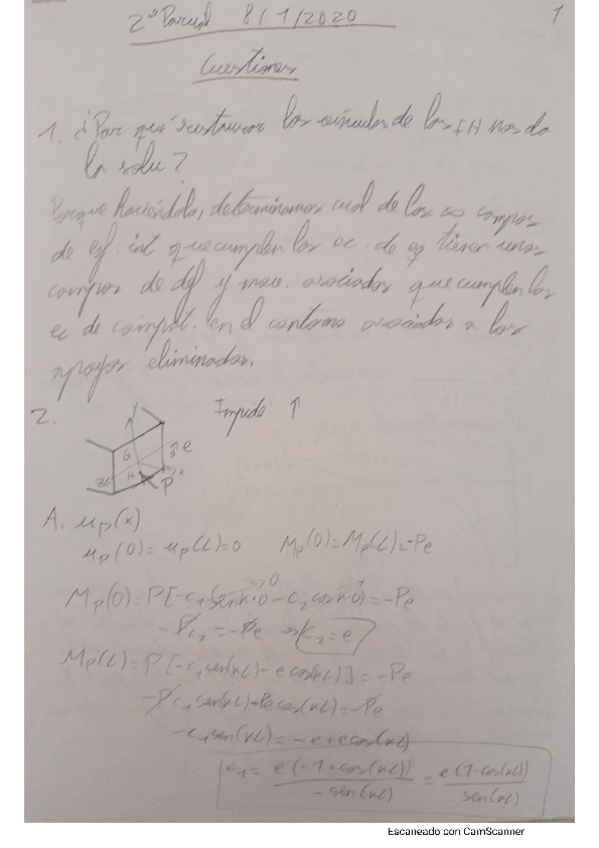 2º Parcial 8/1/2020 1
Cuestiones
1. ¿Por qué restaurar los vínculos de las IH nos da
la solu?
Porque haciéndolo, determinamos cual de los ∞ campos
de esf. int que cumplen las ec. de eq tienen unos
campos de def y mov. asociados que cumplen las
ec de compat. en el contorno asociados a los
apoyos eliminados.
2. Impide ↑
G e
P
A. μp(x)
μp(0)=μp(L)=0 Mp(0)=Mp(L)=-Pe
Mp(0)=P[-c1 sen κ·0 - c2 cos κ·0]=-Pe
-Pc2=-Pe c2=e
Mp(L)=P[-c1 sen(κL)-e cos(κL)]=-Pe
-Pc1 sen(κL)-Pe cos(κL)=-Pe
-c1 sen(κL)=-e+e cos(κL)
c1= e(-1+cos(κL)) / -sen(κL) = e(1-cos(κL)) / sen(κL)
Escaneado con CamScanner